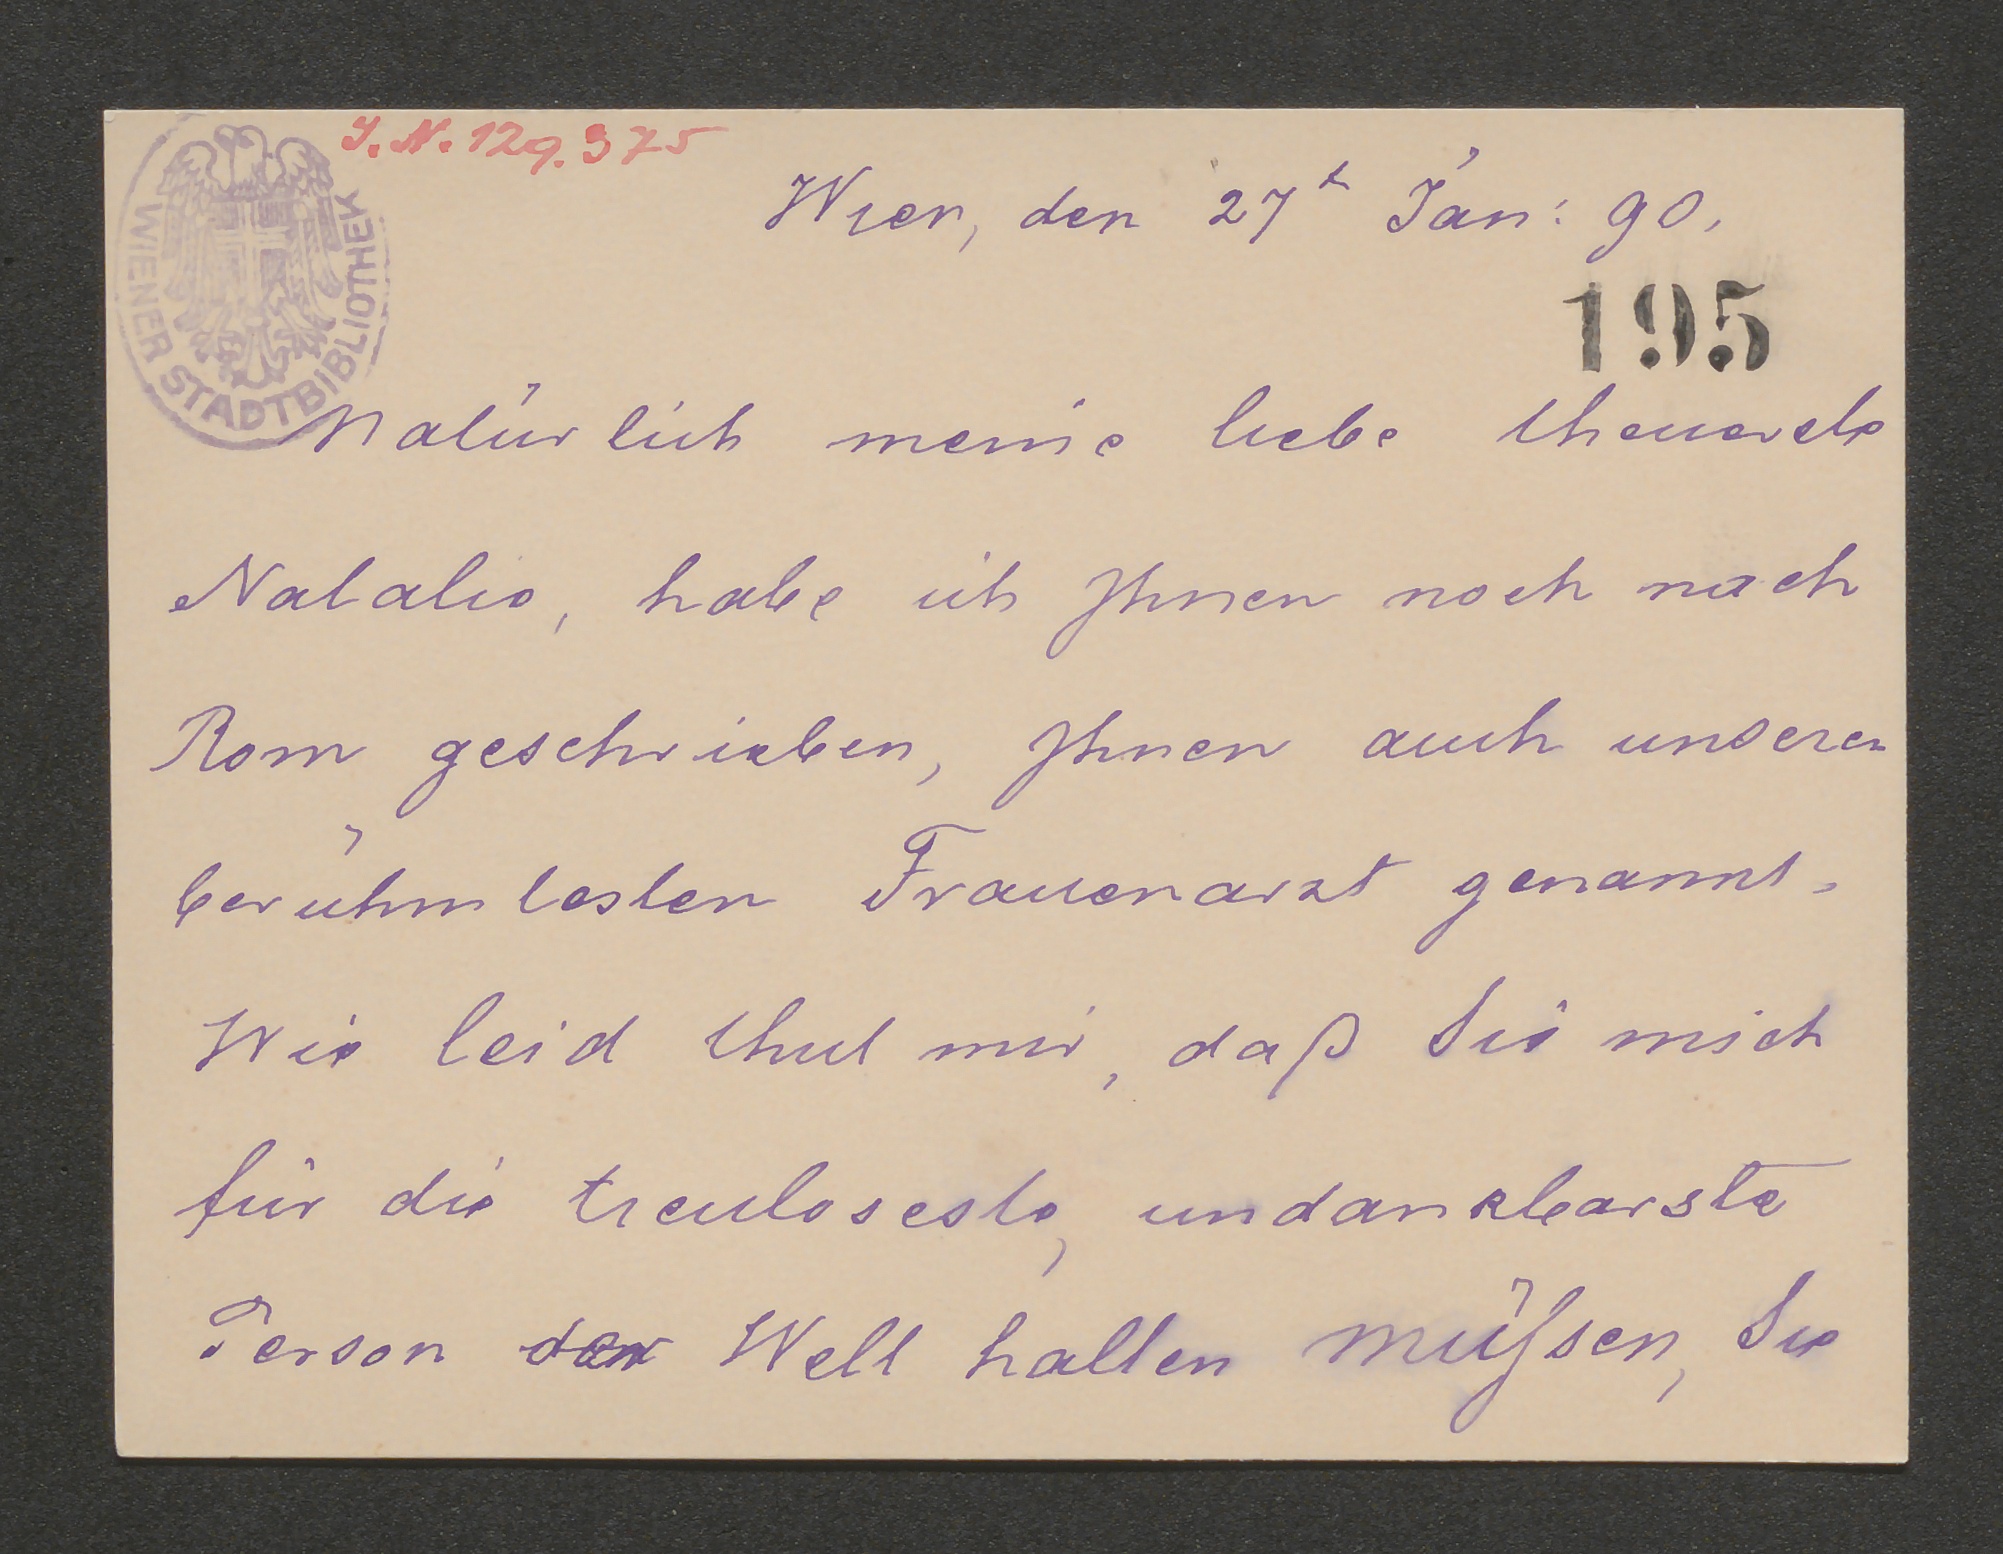 I.N. 129.375
WIENER STADTBIBLIOTHEK
Wien, den 27t Jän: 90.
195
Natürlich meine liebe theuerste
Natalie, habe ich Ihnen noch nach
Rom geschrieben, Ihnen auch unseren
berühmtesten Frauenarzt genannt.
Wie leid thut mir, daß Sie mich
für die treuloseste, undankbarste
Person der Welt halten müßsen, Sie